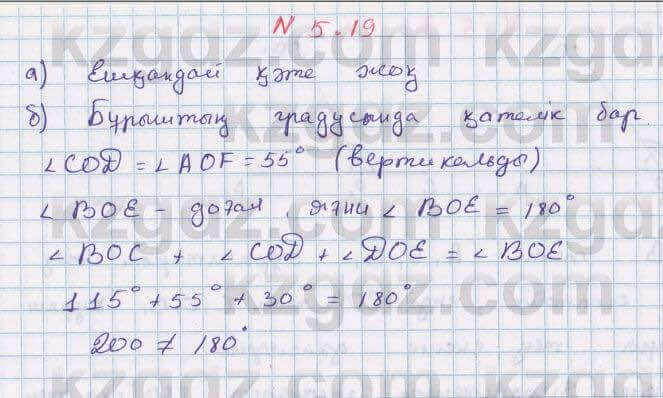 N 5.19
а) Ешқандай қате жоқ
б) Бұрыштың градусында қателік бар.
∠COD = ∠AOF = 55° (вертикальды)
∠BOE - доғал, яғни ∠BOE = 180°
∠BOC + ∠COD + ∠DOE = ∠BOE
115° + 55° + 30° = 180°
200 ≠ 180°